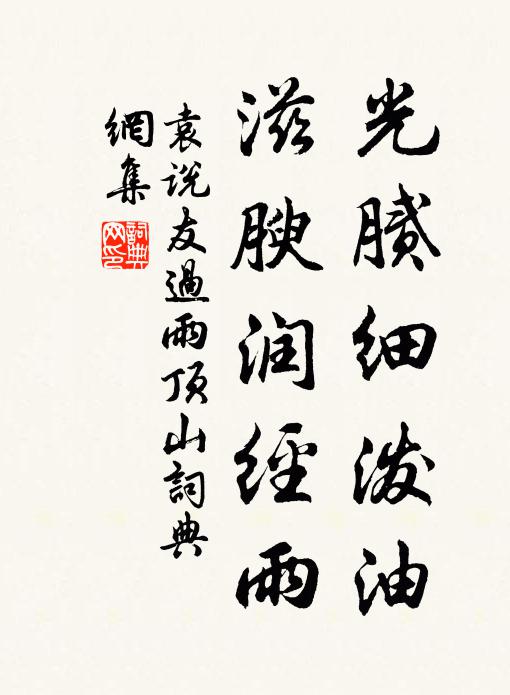 光膩细泼油
滋腴润經雨
袁说友過雨顶山詞典
網集
詞典网印